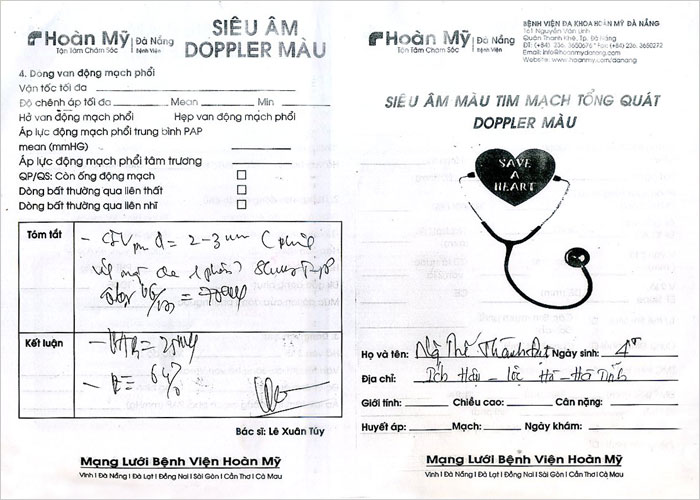 Hoàn Mỹ Đà Nẵng
Tận Tâm Chăm Sóc Bệnh Viện
SIÊU ÂM
DOPPLER MÀU
4. Dòng van động mạch phổi
Vận tốc tối đa
Độ chênh áp tối đa Mean Min
Hở van động mạch phổi Hẹp van động mạch phổi
Áp lực động mạch phổi trung bình PAP
mean (mmHG)
Áp lực động mạch phổi tâm trương
QP/QS: Còn ống động mạch
Dòng bất thường qua liên thất
Dòng bất thường qua liên nhĩ
Tóm tắt
d = 2-3 mm
Kết luận
Bác sĩ: Lê Xuân Túy
Mạng Lưới Bệnh Viện Hoàn Mỹ
Vinh | Đà Nẵng | Đà Lạt | Đồng Nai | Sài Gòn | Cần Thơ | Cà Mau
Hoàn Mỹ Đà Nẵng
Tận Tâm Chăm Sóc Bệnh Viện
BỆNH VIỆN ĐA KHOA HOÀN MỸ ĐÀ NẴNG
161 Nguyễn Văn Linh
Quận Thanh Khê, Tp. Đà Nẵng
ĐT: (+84) 236. 3650676 * Fax:(+84) 236. 3650272
Email: info@hoanmydanang.com
Website: www.hoanmy.com/danang
SIÊU ÂM MÀU TIM MẠCH TỔNG QUÁT
DOPPLER MÀU
SAVE
A
HEART
Họ và tên: Ngô Thế Thành Ngày sinh: 4
Địa chỉ: Ích Hậu - Lộc Hà - Hà Tĩnh
Giới tính: Chiều cao: Cân nặng:
Huyết áp: Mạch: Ngày khám:
Mạng Lưới Bệnh Viện Hoàn Mỹ
Vinh | Đà Nẵng | Đà Lạt | Đồng Nai | Sài Gòn | Cần Thơ | Cà Mau